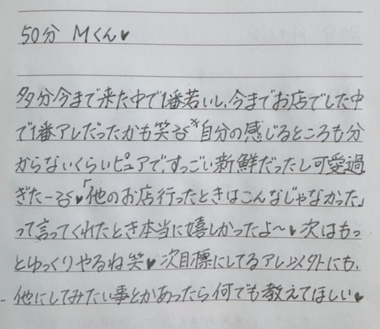 50分 Mくん♥
多分今まで来た中で1番若いし、今までお店でした中
で1番アレだったかも笑 自分の感じるところも分
からないくらいピュアで、すっごい新鮮だったし可愛過
ぎたー♥「他のお店行ったときはこんなじゃなかった」
って言ってくれたとき本当に嬉しかったよ〜♥次はもっ
とゆっくりやるね笑♥次目標にしてるアレ 以外にも、
他にしてみたい事とかあったら何でも教えてほしい♥